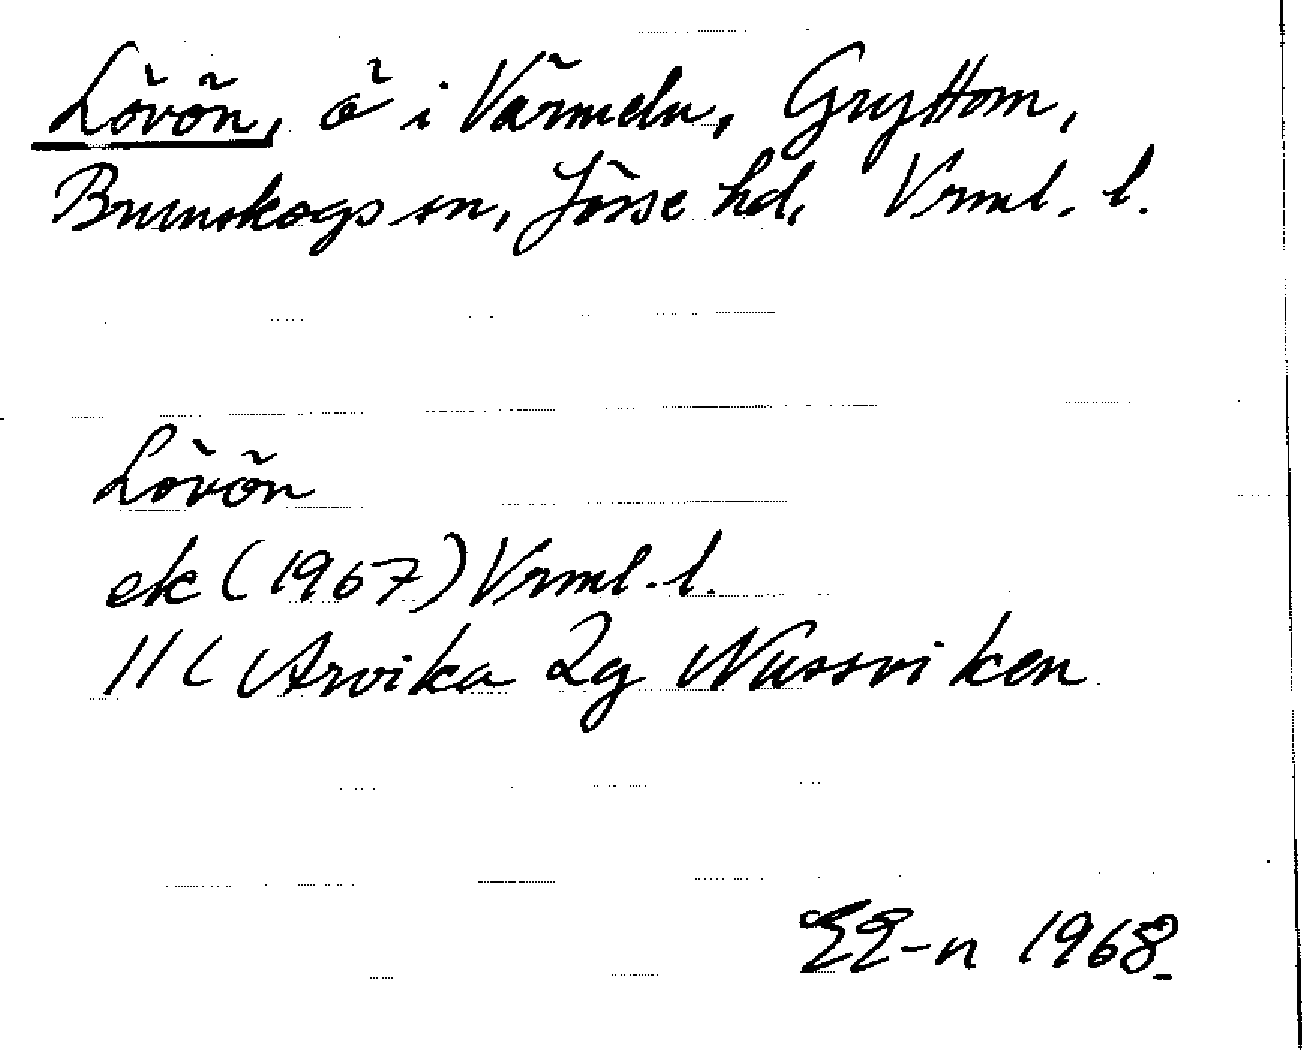 Lövön, ö i Värmeln, Gryttom,
Brunskogs sn, Jösse hd, Vrml. l.
Lövön
ek (1967) Vrml. l.
11C Arvika 2g Nussviken
EE-n 1968